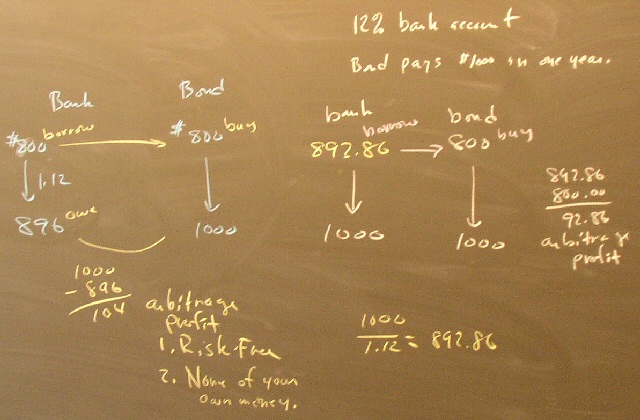 12% bank account
Bond pays $1000 in one year.
Bank
Bond
$800 borrow
$800 buy
1.12
896 owe
1000
1000
- 896
104
arbitrage
profit
1. Risk-Free
2. None of your
own money.
bank
bond
892.86 borrow
800 buy
1000
1000
892.86
800.00
92.86
arbitrage
profit
1000
1.12 = 892.86